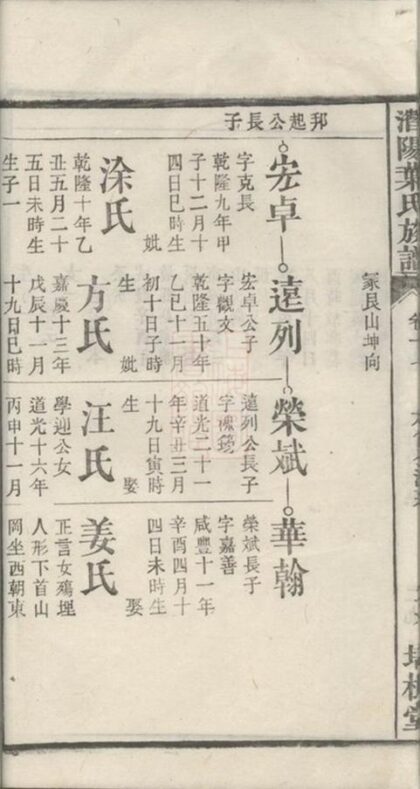 陽葉氏族譜
堂
冢艮山坤向
邦起公長子
宏卓
字克長
乾隆九年甲
子十二月十
四日巳時生
妣
涂氏
乾隆十年乙
丑五月二十
五日未時生
生子一
遠列
宏卓公子
字觀文
乾隆五十年
乙巳十一月
初十日子時
生 妣
方氏
嘉慶十三年
戊辰十一月
十九日巳時
榮斌
遠列公長子
字槐筠
道光二十一
年辛丑三月
十九日寅時
生 娶
汪氏
學迎公女
道光十六年
丙申十一月
華翰
榮斌長子
字嘉善
咸豐十一年
辛酉四月十
四日未時生
娶
姜氏
正言女殤埋
人形下首山
岡坐西朝東